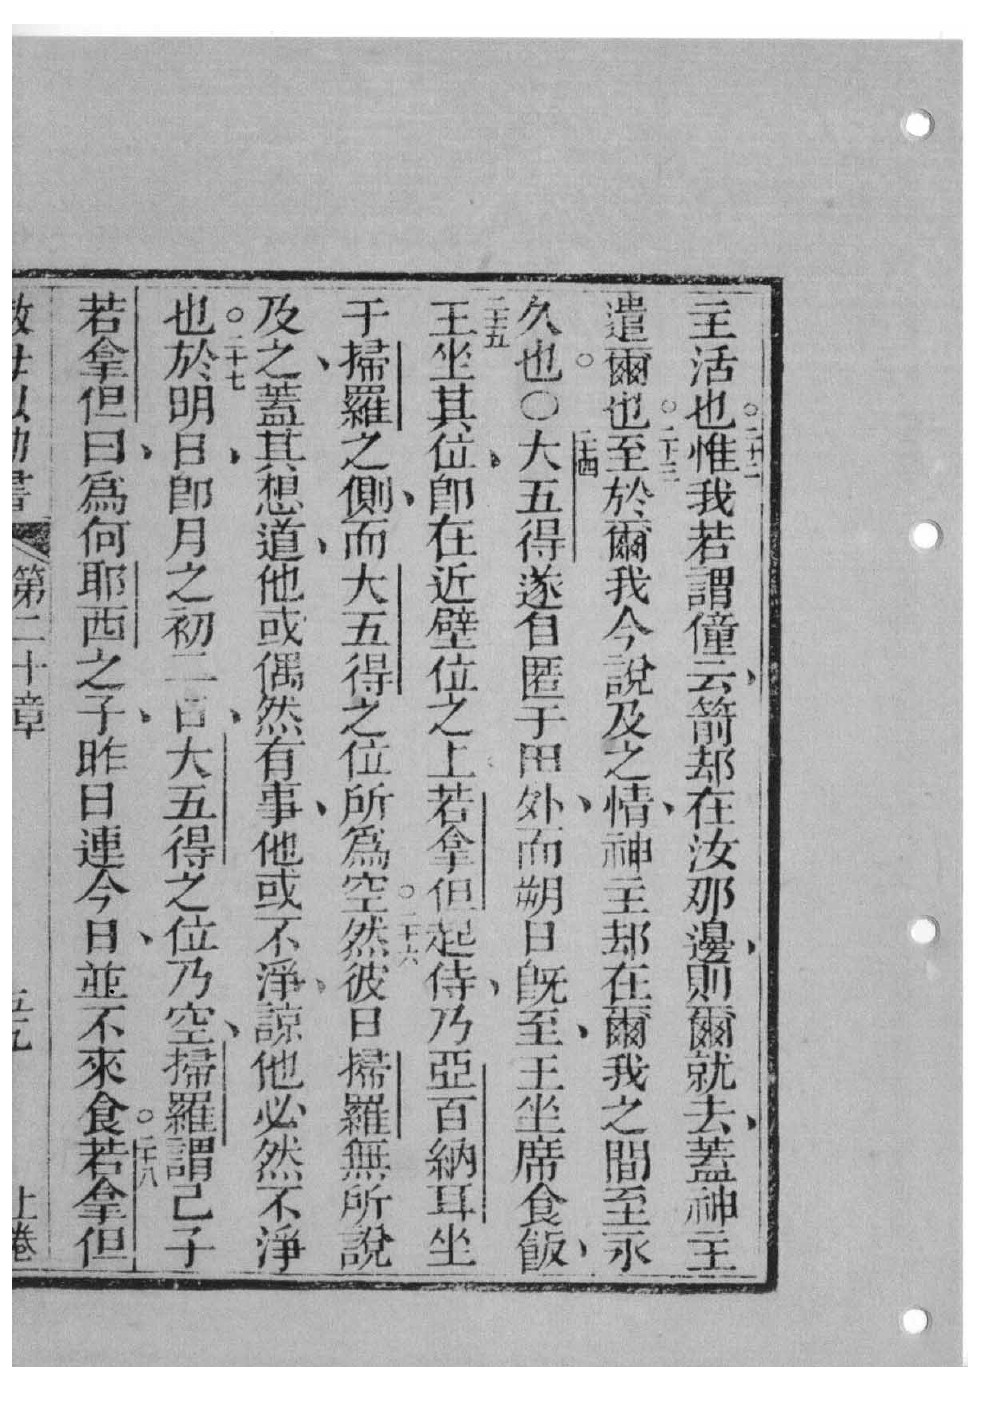 主活也○二十二惟我若謂僮云、箭却在汝那邊、則爾就去、蓋神主
遣爾也○二十三至於爾我今說及之情、神主却在爾我之間至永
久也○〇二十四大五得遂自匿于田外、而朔日既至、王坐席食飯、
二十五王坐其位、卽在近壁位之上若拿但起侍、乃亞百納耳坐
于掃羅之側、而大五得之位所爲空然○二十六彼日掃羅無所說
及之、蓋其想道、他或偶然有事、他或不淨、諒他必然不淨
也○二十七於明日、卽月之初二日、大五得之位乃空、掃羅謂己子
若拿但曰、爲何耶西之子、昨日連今日、並不來食○二十八若拿但
第二十章
上卷